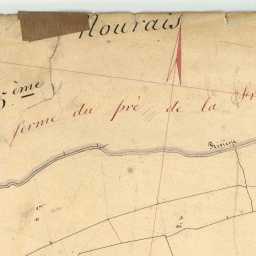 Nourais
5ème
ferme du pré de la
Rivière